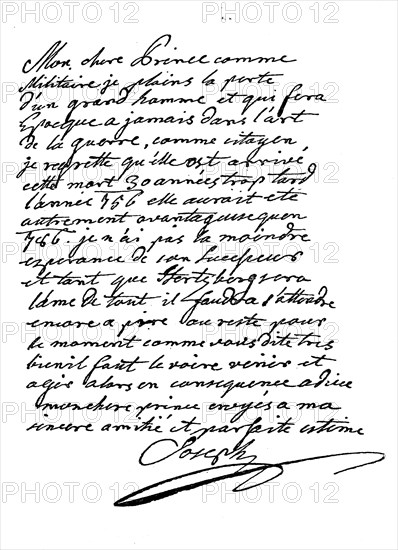 Mon chere Prince comme
Militaire je plains la perte
d'un grand homme et qui fera
Epocque a jamais dans l'art
de la guerre, comme citoyen,
je regrette qu'elle est arrivé
cette mort 30 années trop tard
l'année 756 elle aurait eté
autrement avantaguise qu'en
786. je n'ai pas la moindre
esperance de son Succeseur
et tant que Hertzberg sera
l'ame de tout il faudra s'attendre
encore a pire au reste pour
le moment comme vous dite tres
bien il faut le voire venir et
agir alors en consequence adieu
mon chere prince croyés a ma
sincere amitié et parfaite estime
Joseph
PHOTO 12